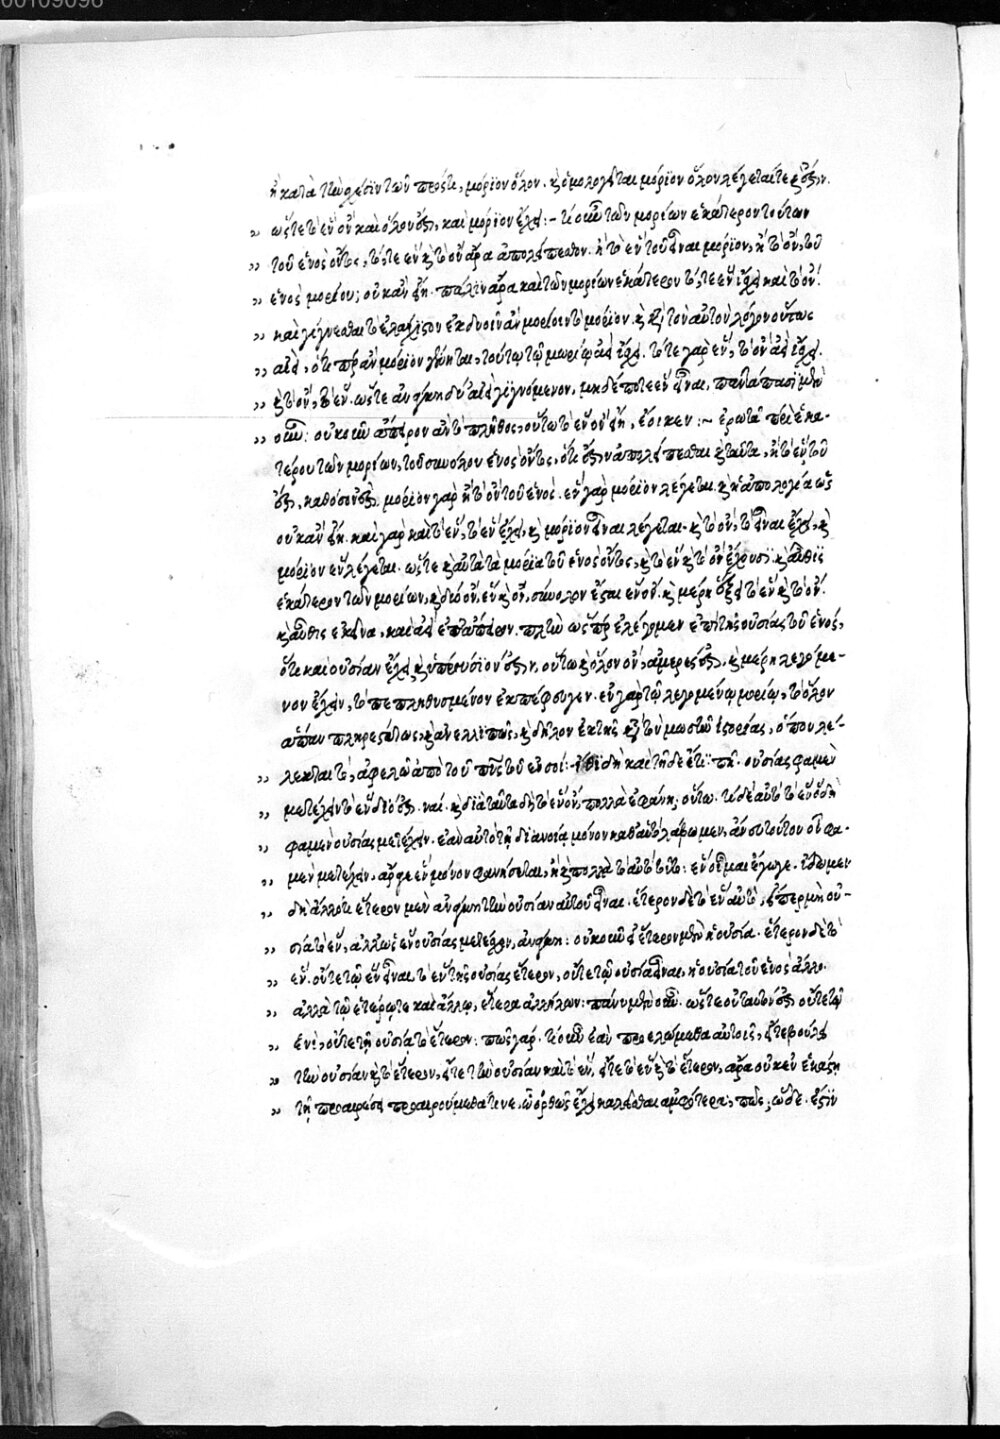 00109098
ἢ κατὰ τὴν χρείαν τῶν μόριον ὅλον. καὶ ὁμολογεῖται μόριον ὅλον λέγεταί τε καὶ ἔστιν.
ὥστε τὸ ἓν ὂν καὶ ὅλον ἐστι, καὶ μόριον ἔχει :– τί οὖν τῶν μορίων ἑκάτερον τούτων
τοῦ ἑνὸς ὄντος, τό, τε ἓν καὶ τὸ ὂν ἆρα ἀπολείπεσθον. ἢ τὸ ἓν τοῦ εἶναι μόριον, ἢ τὸ ὄν, τοῦ
ἑνὸς μορίου; οὐκ ἂν εἴη. πάλιν ἄρα καὶ τῶν μορίων ἑκάτερον τό, τε ἓν ἴσχει καὶ τὸ ὄν.
καὶ γίγνεσθαι τὸ ἐλάχιστον ἐκ δυοῖν ἂν μορίοιν τὸ μόριον. καὶ κατὰ τὸν αὐτὸν λόγον οὕτως
ἀεί, ὅτι περ ἂν μόριον γένηται, τούτω τῶ μορίω ἀεὶ ἴσχει. τό τε γὰρ ἕν, τὸ ὂν ἀεὶ ἴσχει.
καὶ τὸ ὄν, τὸ ἕν. ὥστε ἀνάγκη δύ' ἀεὶ γιγνόμενον, μηδέποτε ἓν εἶναι. παντάπασι μὲν
οὖν: οὐκοῦν ἄπειρον ἂν τὸ πλῆθος, οὕτω τὸ ἓν ὂν εἴη, ἔοικεν :– ἐρωτᾶ περὶ ἑκα-
τέρου τῶν μορίων, τοῦ συνόλου ἑνὸς ὄντος, ὅτι ἔστιν ἀπολείπεσθαι καὶ ταῦτα, ἢ τὸ ἓν τοῦ
ἔστι, καθόσον ἔστι. μόριον γὰρ ἢ τὸ ὂν τοῦ ἑνός. ἓν γὰρ μόριον λέγεται. καὶ ἡ ἀπολογία ὡς
οὐκ ἂν εἴη. καὶ γὰρ καὶ τὸ ἕν, τὸ ἓν ἔχει, καὶ μόριον εἶναι λέγεται. καὶ τὸ ὄν, τὸ εἶναι ἔχει, καὶ
μόριον ἓν λέγεται. ὥστε καὶ αὐτὰ τὰ μόρια τοῦ ἑνὸς ὄντος, καὶ τὸ ἓν καὶ τὸ ὂν ἔχουσι. καὶ αὖθις
ἑκάτερον τῶν μορίων, καὶ διὸ ὄν, ἓν καὶ ὄν, σύνολον ἔσται ἓν ὄν. καὶ μέρη ἕξει τὸ ἓν καὶ τὸ ὄν.
καὶ αὖθις ἐκεῖνα, καὶ ἀεὶ ἐπ' ἄπειρον. πλὴν ὥσπερ ἐλέγομεν ἐπὶ τῆς οὐσίας τοῦ ἑνός,
ὅτι καὶ οὐσίαν ἔχει καὶ ὑπερούσιον ἔστιν, οὕτω καὶ ὅλον ὄν, ἀμερές ἐστι. καὶ μέρη λεγόμε-
νον ἔχειν, τὸ πεπληθυσμένον ἐκπέφευγεν. ἐν γὰρ τῶ λεγομένω μορίω, τὸ ὅλον
ἅπαν πλήρες ὄντως, καὶ ἀνελλιπῶς, καὶ δῆλον ἐκ τῆς κατὰ τὸν μωσῆν ἱστορίας, ὅπου λέ-
λεκται τό, ἀφελῶ ἀπὸ τοῦ πνεύματος τοῦ ἐν σοί :– ἴθι δὴ καὶ τῆδε ἔτι: πῆ. οὐσίας φαμὲν
μετέχειν τὸ ἓν διὸ ἔστι. ναί. καὶ διὰ ταῦτα δὴ τὸ ἓν ὄν, πολλὰ ἐφάνη; οὕτω. τί δὲ αὐτὸ τὸ ἓν ὃ δὴ
φαμὲν οὐσίας μετέχειν. ἐὰν αὐτὸ τῆ διανοία μόνον καθ' αὑτὸ λάβωμεν, ἄνευ τούτου οὗ φα-
μὲν μετέχειν, ἆρά γε ἓν μόνον φανήσεται, ἢ καὶ πολλὰ τὸ αὐτὸ τοῦτο: ἓν οἶμαι ἔγωγε. ἴδωμεν
δὴ ἄλλο τι ἕτερον μὲν ἀνάγκη τὴν οὐσίαν αὐτοῦ εἶναι. ἕτερον δὲ τὸ ἓν αὐτό, εἴπερ μὴ οὐ-
σία τὸ ἕν, ἀλλ' ὡς ἓν οὐσίας μετέχον, ἀνάγκη: οὐκοῦν εἰ ἕτερον μὲν ἡ οὐσία. ἕτερον δὲ τὸ
ἕν. οὔτε τῶ ἓν εἶναι τὸ ἓν τῆς οὐσίας ἕτερον, οὔτε τῶ οὐσία εἶναι, ἡ οὐσία τοῦ ἑνὸς ἄλλο.
ἀλλὰ τῶ ἑτέρω τε καὶ ἄλλω, ἕτερα ἀλλήλων: πάνυ μὲν οὖν. ὥστε οὐ ταυτόν ἐστιν οὔτε τῶ
ἑνί, οὔτε τῆ οὐσία τὸ ἕτερον: πῶς γάρ. τί οὖν ἐὰν προελώμεθα αὐτοῖς, εἴτε βούλει
τὴν οὐσίαν καὶ τὸ ἕτερον, εἴτε τὴν οὐσίαν καὶ τὸ ἕν, εἴτε τὸ ἓν καὶ τὸ ἕτερον, ἆρα οὐκ ἐν ἑκάστη
τῆ προαιρέσει προαιρούμεθά τινε, ὣ ὀρθῶς ἔχει καλεῖσθαι ἀμφότερα, πῶς; ὧδε. ἔστιν